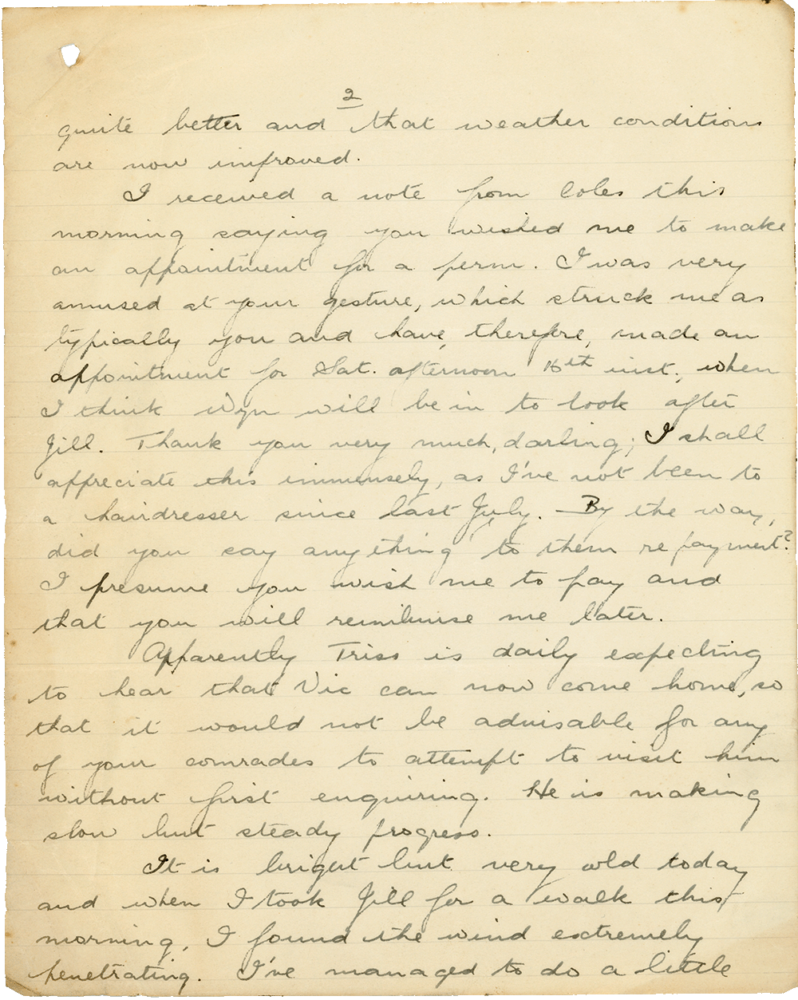 2
quite better and that weather conditions
are now improved.
I received a note from Coles this
morning saying you wished me to make
an appointment for a perm. I was very
amused at your gesture, which struck me as
typically you and have, therefore, made an
appointment for Sat. afternoon 16th inst., when
I think Wyn will be in to look after
Jill. Thank you very much, darling; I shall
appreciate this immensely, as I've not been to
a hairdresser since last July. By the way,
did you say anything to them re payment?
I presume you wish me to pay and
that you will reimburse me later.
Apparently Triss is daily expecting
to hear that Vic can now come home, so
that it would not be advisable for any
of your comrades to attempt to visit him
without first enquiring. He is making
slow but steady progress.
It is bright but very cold today
and when I took Jill for a walk this
morning, I found the wind extremely
penetrating. I've managed to do a little